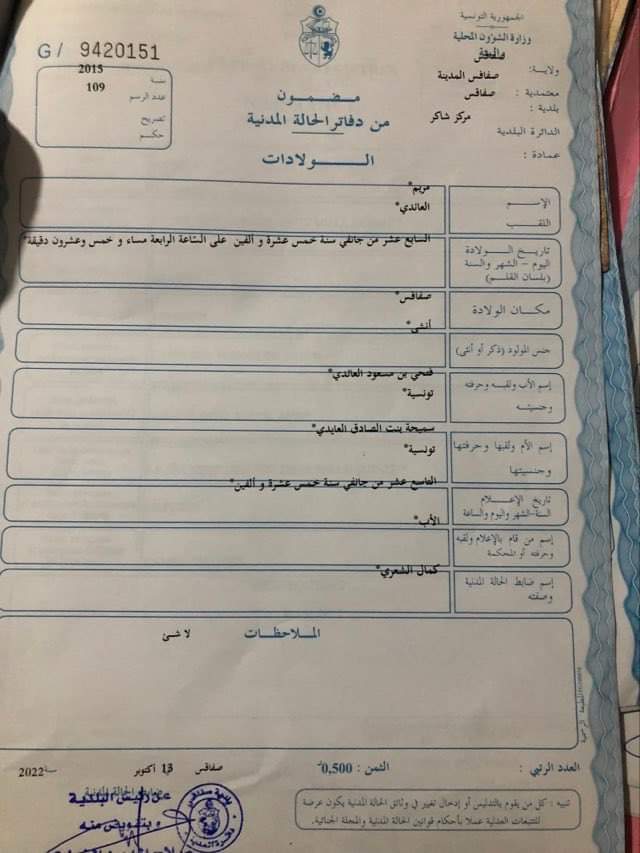 الجمهورية التونسية
وزارة الشؤون المحلية
والبيئة
صفاقس
ولاية:
صفاقس المدينة
معتمدية :
صفاقس
بلدية :
مركز شاكر
الدائرة البلدية
عمادة :
G/ 9420151
سنة 2015
عدد الرسم 109
تصريح
حكم
مضمون
من دفاتر الحالة المدنية
الولادات
الإسم
مريم*
اللقب
العائدي*
تاريخ الولادة
اليوم - الشهر والسنة
(بلسان القلم)
السابع عشر من جانفي سنة خمس عشرة و ألفين على الساعة الرابعة مساء و خمس وعشرون دقيقة*
مكان الولادة
صفاقس*
جنس المولود (ذكر أو أنثى)
أنثى*
إسم الأب ولقبه وحرفته
وجنسيته
فتحي بن مسعود العائدي*
تونسية*
إسم الأم ولقبها وحرفتها
وجنسيتها
سميحة بنت الصادق العايدي*
تونسية*
تاريخ الإعلام
السنة-الشهر واليوم والساعة
التاسع عشر من جانفي سنة خمس عشرة و ألفين*
إسم من قام بالإعلام ولقبه
وحرفته أو المحكمة
الأب*
إسم ضابط الحالة المدنية
وصفته
كمال الشعري*
الملاحظات
لا شئ
المطبعة الرسمية
العدد الرتبي :
الثمن : 0,500د
صفاقس 13 أكتوبر سنة 2022
ضابط الحالة المدنية
تنبيه : كل من يقوم بالتدليس أو إدخال تغيير في وثائق الحالة المدنية يكون عرضة
للتتبعات العدلية عملا بأحكام قوانين الحالة المدنية والمجلة الجنائية.
عن رئيس البلدية
وبتفويض منه